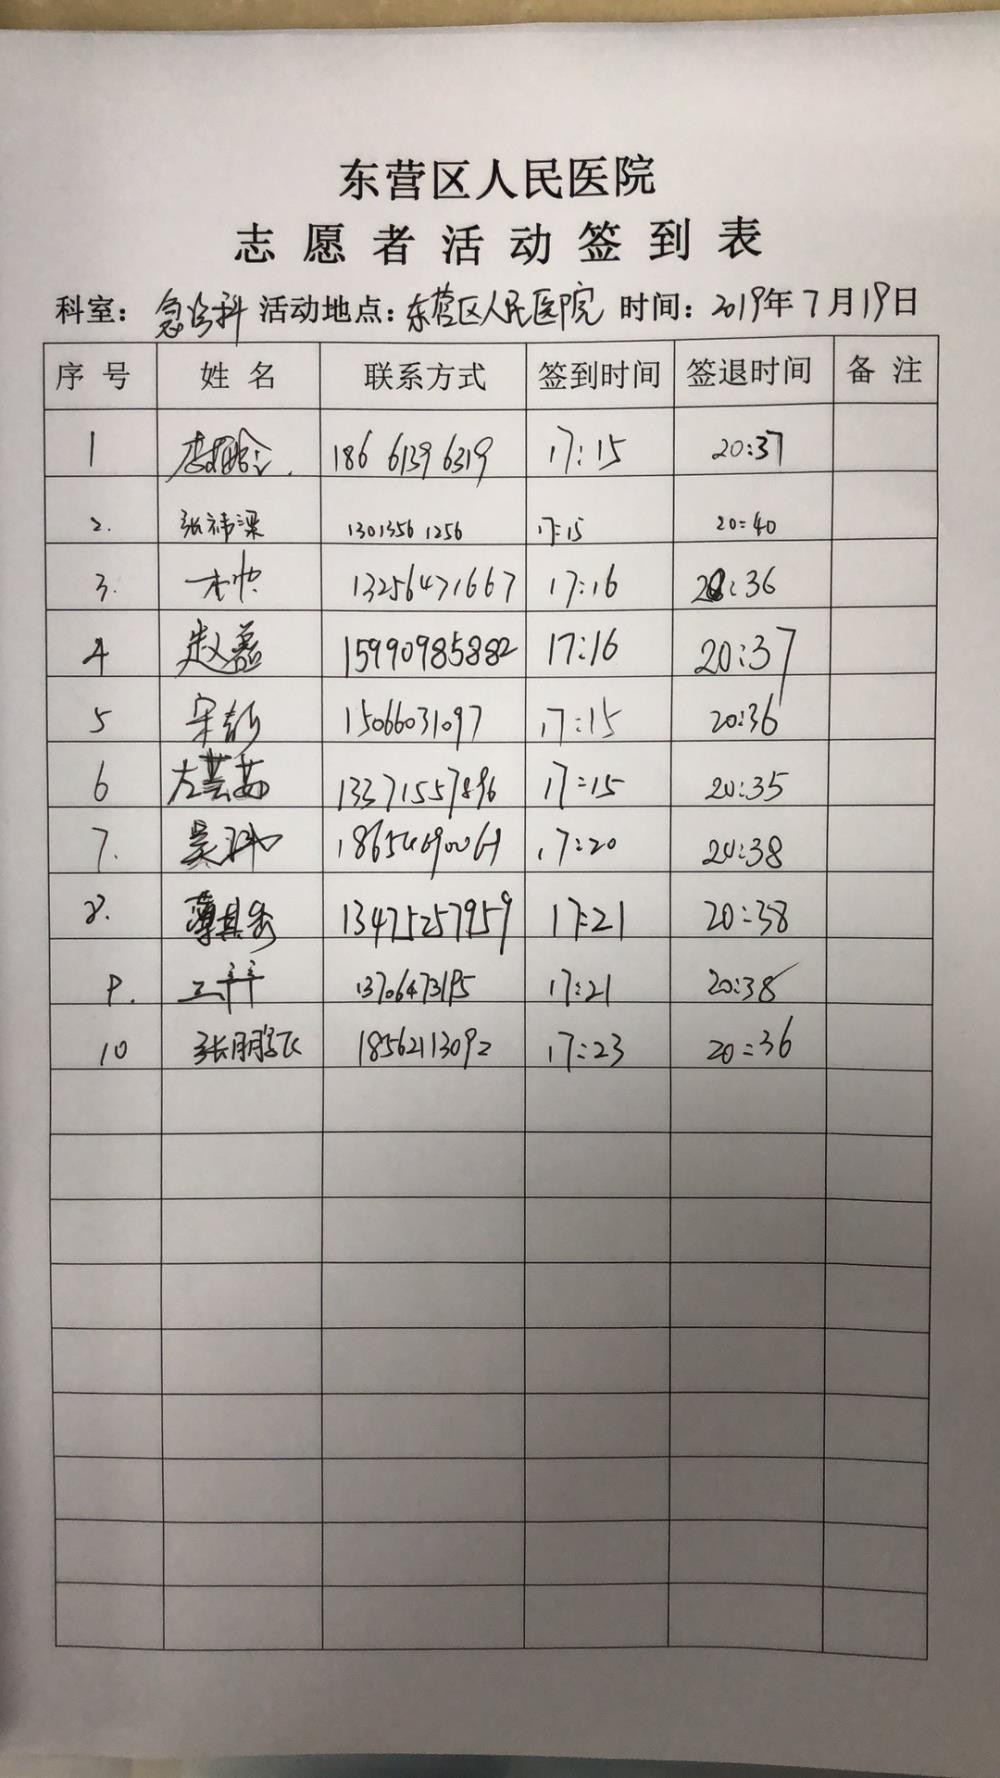 东营区人民医院
志愿者活动签到表
科室：急诊科 活动地点：东营区人民医院 时间：2019年7月19日
序号 姓名 联系方式 签到时间 签退时间 备注
1 186 6139 6319 17:15 20:37
2. 张祎梁 1301356 1256 17:15 20:40
3. 13256471667 17:16 20:36
4 赵蕊 15990985882 17:16 20:37
5 宋彭 15066031097 17:15 20:36
6 左芸茹 13371557896 17:15 20:35
7. 吴 17:20 20:38
8. 薄其秀 13475257959 17:21 20:38
9. 王祥 13706473195 17:21 20:38
10 张鹏飞 18562113092 17:23 20:36